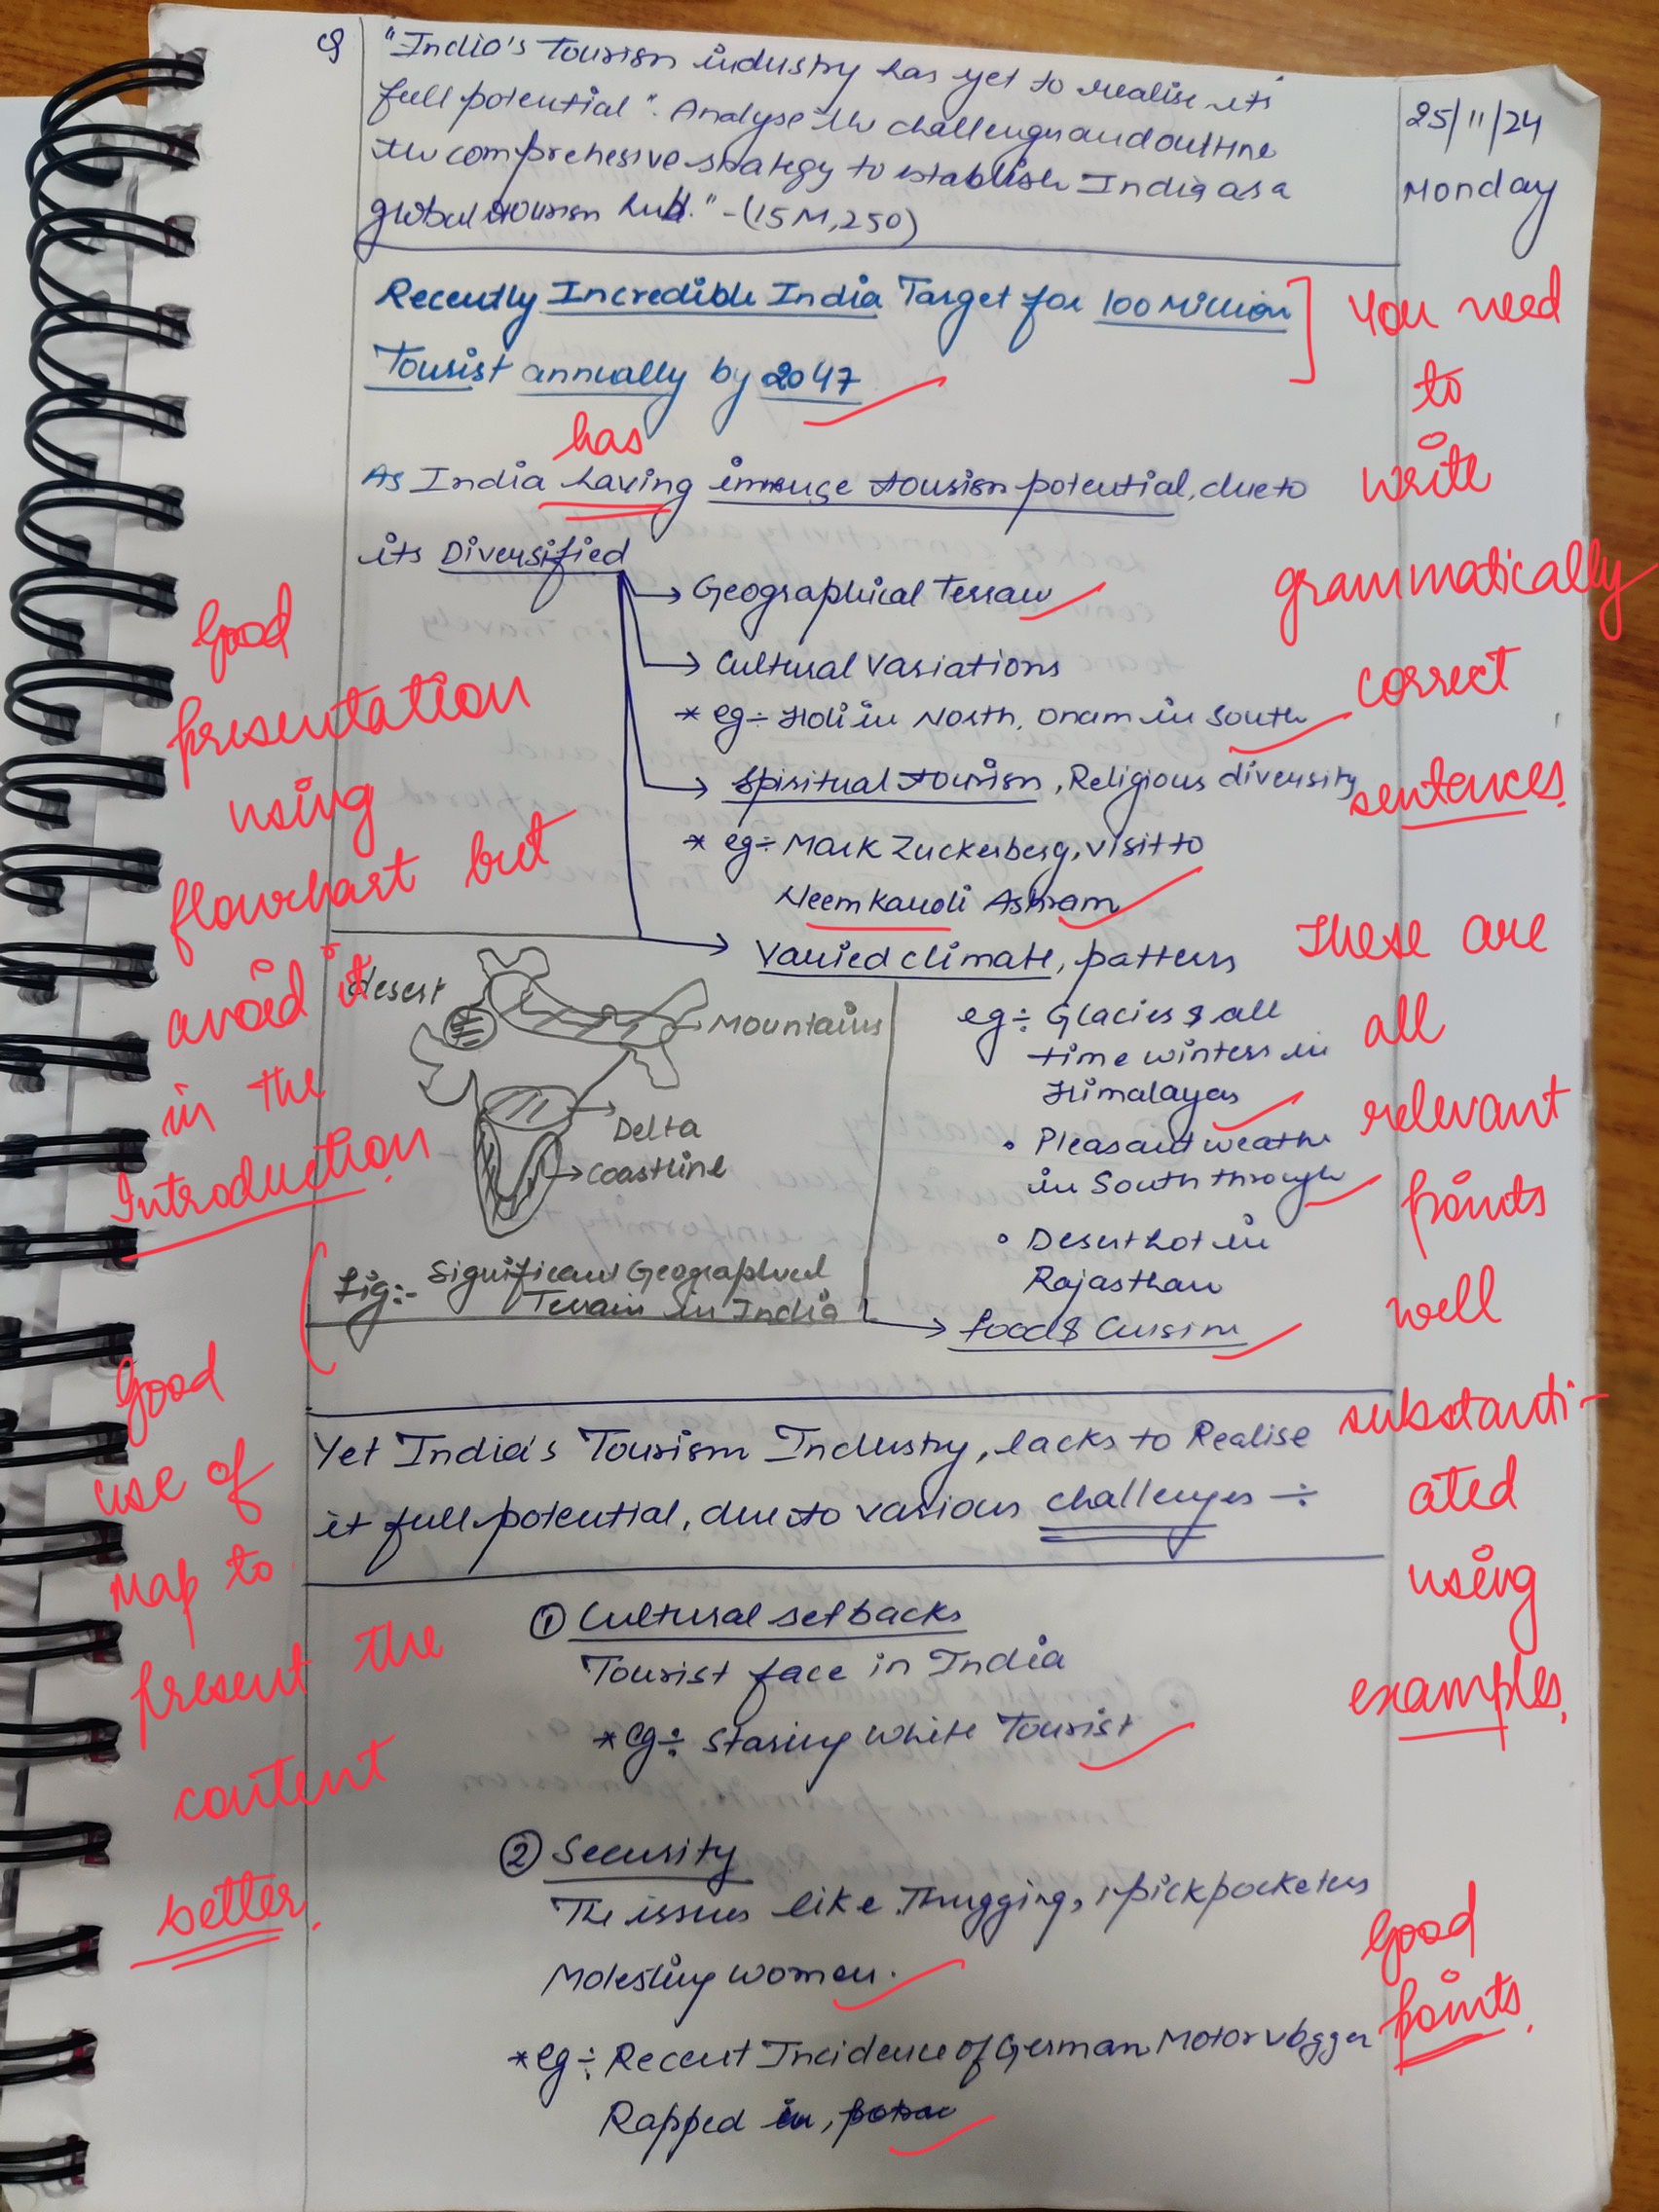 Q "India's tourism industry has yet to realise its
full potential". Analyse the challenges and outline
the comprehesive strategy to establish India as a
global tourism hub." - (15M, 250)
25/11/24
Monday
Recently Incredible India Target for 100 Million
Tourist annually by 2047
You need
to
write
grammatically
correct
sentences.
has
As India having immense tourism potential, due to
its Diversified
→ Geographical Terrain
→ Cultural Variations
* eg ÷ Holi in North, Onam in South
→ Spiritual tourism, Religious diversity
* eg ÷ Mark Zuckerberg, visit to
Neem Karoli Ashram
→ Varied climate, patterns
eg ÷ Glacies & all
time winters in
Himalayas
• Pleasant weathe
in South through
• Desert hot in
Rajasthan
→ food & Cuisine
Good
presentation
using
flowchart but
avoid it
in the
Introduction
desert
Mountains
Delta
Coastline
Fig:- Significant Geographical
Terrain in India
These are
all
relevant
points
well
substanti-
ated
using
examples.
Good
use of
map to
present the
content
better.
Yet India's Tourism Industry, lacks to Realise
it full potential, due to various challenges ÷
① Cultural setbacks
Tourist face in India
* eg ÷ staring White Tourist
② Security
The issues like Thrugging, pickpocketers
Molesting women.
* eg ÷ Recent Incidence of German Motorvlogger
Rapped in,
Good
points.